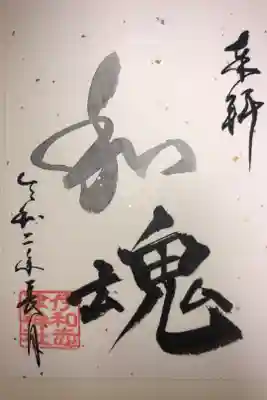 奉拜
和魂
令和二年長月